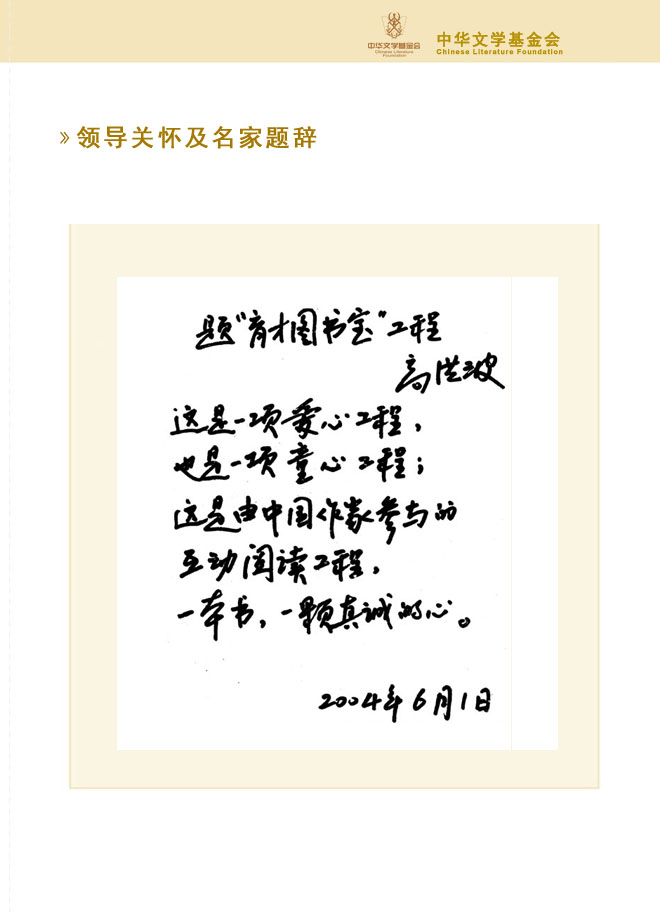 中华文学基金会
Chinese Literature
Foundation
中华文学基金会
Chinese Literature Foundation
» 领导关怀及名家题辞
题“育才图书室”工程
高洪波
这是一项爱心工程，
也是一项童心工程；
这是由中国作家参与的
互动阅读工程，
一本书，一颗真诚的心。
2004年6月1日